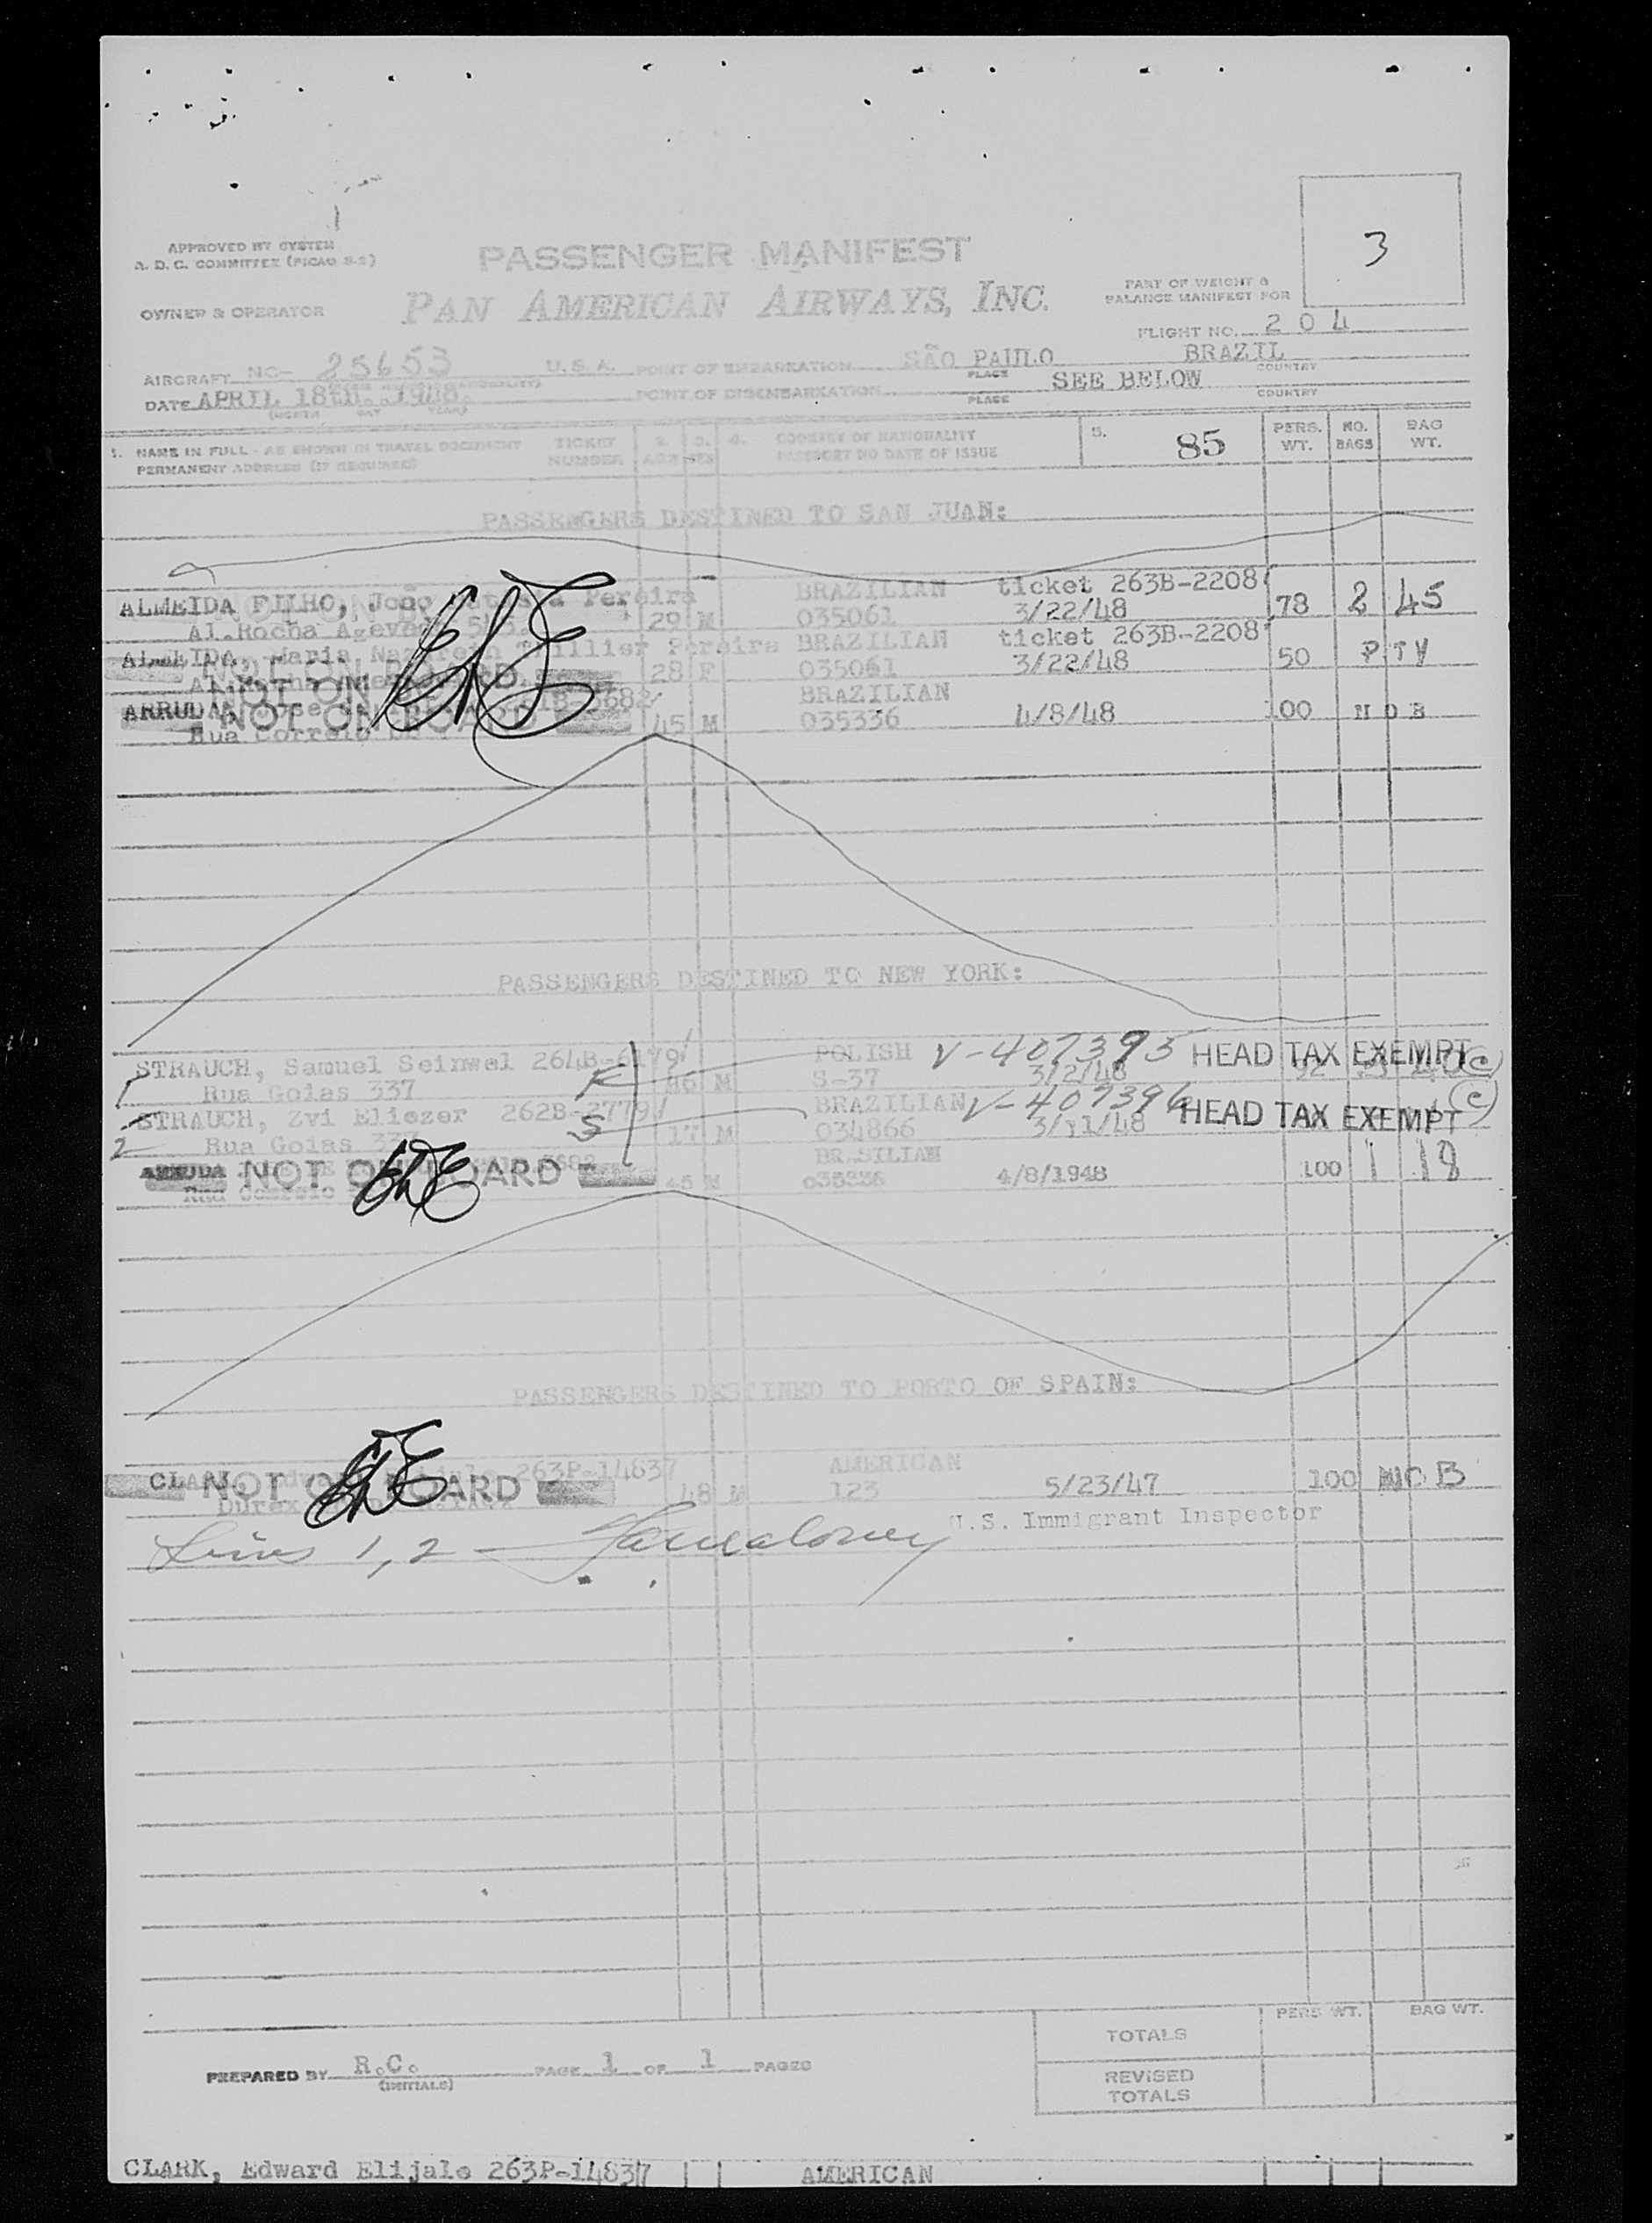 3
APPROVED BY SYSTEM
A. D. C. COMMITTEE (PICAO S-2)
PASSENGER MANIFEST
PART OF WEIGHT &
BALANCE MANIFEST FOR
OWNER & OPERATOR
PAN AMERICAN AIRWAYS, INC.
FLIGHT NO. 204
AIRCRAFT NC- 25653 U.S.A. POINT OF EMBARKATION SÃO PAULO BRAZIL
PLACE COUNTRY
DATE APRIL 18th. 1948. POINT OF DISEMBARKATION SEE BELOW
(MONTH DAY YEAR) PLACE COUNTRY
1. NAME IN FULL - AS SHOWN IN TRAVEL DOCUMENT TICKET 2. 3. 4. COUNTRY OF NATIONALITY 5. 85 PERS. NO. BAG
PERMANENT ADDRESS (IF REQUIRED) NUMBER AGE SEX PASSPORT NO DATE OF ISSUE WT. BAGS WT.
PASSENGERS DESTINED TO SAN JUAN:
ALMEIDA FILHO, João Pereira BRAZILIAN ticket 263B-2208
Al.Rocha Azevedo 29 M 035061 3/22/48 78 2 45
ALMEIDA, Maria Pereira BRAZILIAN ticket 263B-2208
NOT ON 28 F 035061 3/22/48 50 PTY
ARRUDA, Jose BRAZILIAN
NOT ON BOARD 45 M 035336 4/8/48 100 NOB
Rua Correio
PASSENGERS DESTINED TO NEW YORK:
STRAUCH, Samuel Seinwel 264B-6179 POLISH V-407395 HEAD TAX EXEMPT (C)
1 Rua Goias 337 46 M S-37 3/2/48
STRAUCH, Zvi Eliezer 262B-2779 BRAZILIAN V-407396 HEAD TAX EXEMPT (C)
2 Rua Goias 337 17 M 034866 3/11/48
ARRUDA NOT ON BOARD BRASILIAN
45 M 035336 4/8/1948 100 1 18
PASSENGERS DESTINED TO PORTO OF SPAIN:
CLARK, 263P-14837 AMERICAN
NOT ON BOARD 48 M 123 5/23/47 100 NOB
U.S. Immigrant Inspector
Lines 1, 2
TOTALS PERS WT. BAG WT.
PREPARED BY R.C. PAGE 1 OF 1 PAGES
(INITIALS)
REVISED
TOTALS
CLARK, Edward Elijale 263P-14837 AMERICAN